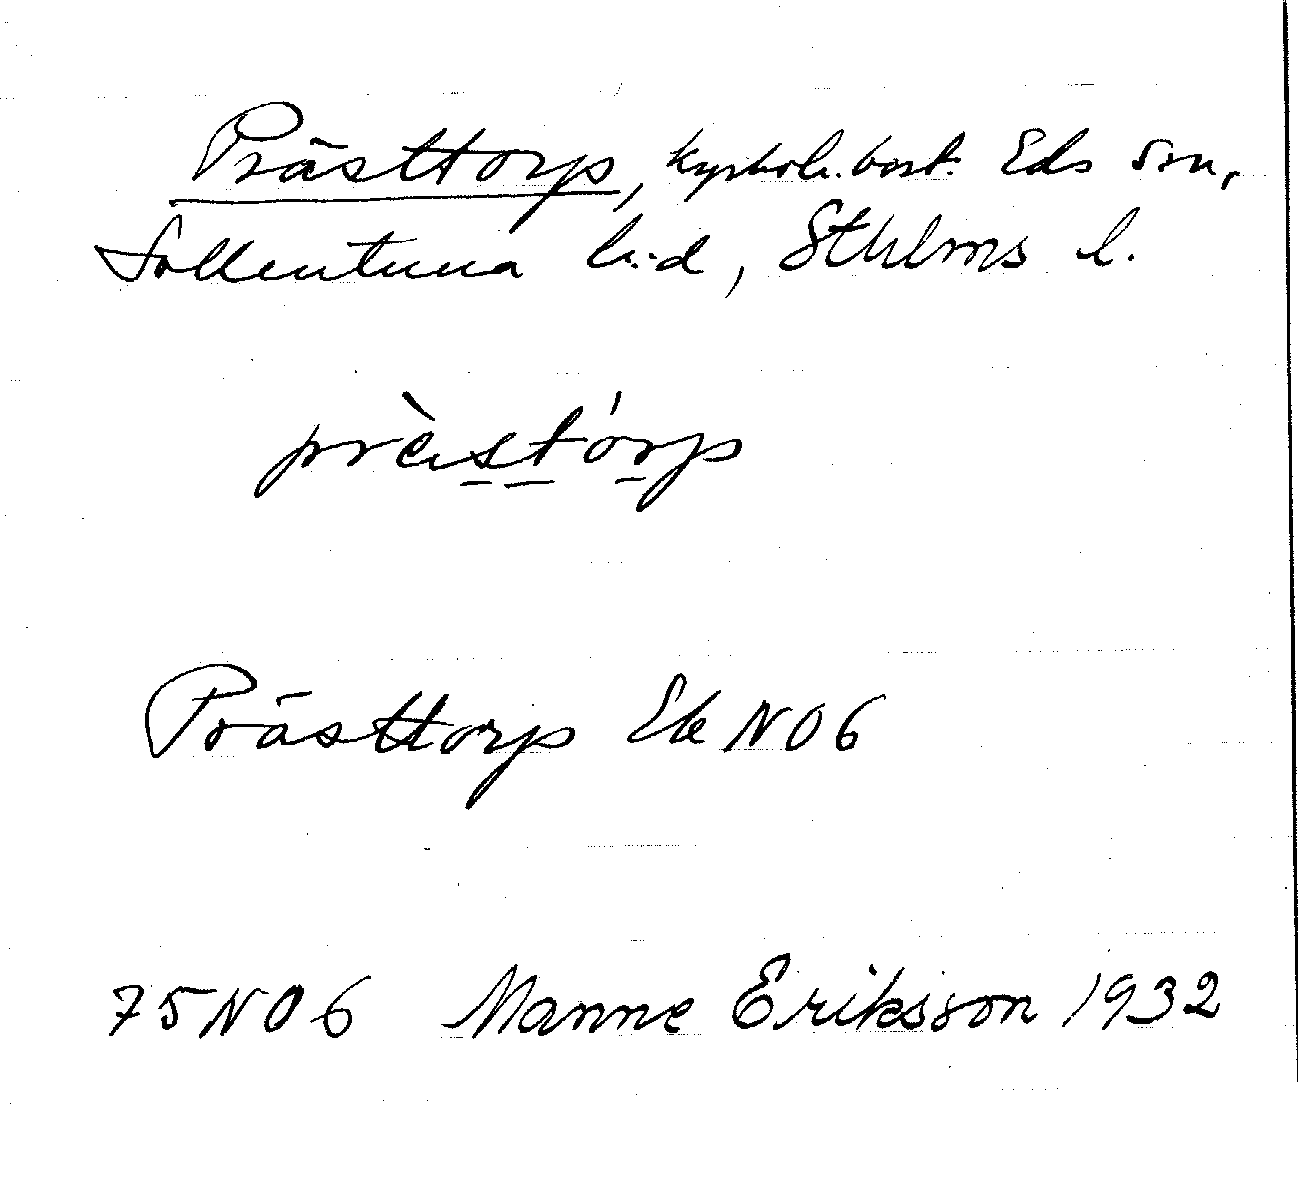 Prästtorp, kyrkoh.bost. Eds sn,
Sollentuna hd, Sthlms l.
prɛ̀stórp
Prästtorp Ek N06
75N06 Manne Eriksson 1932